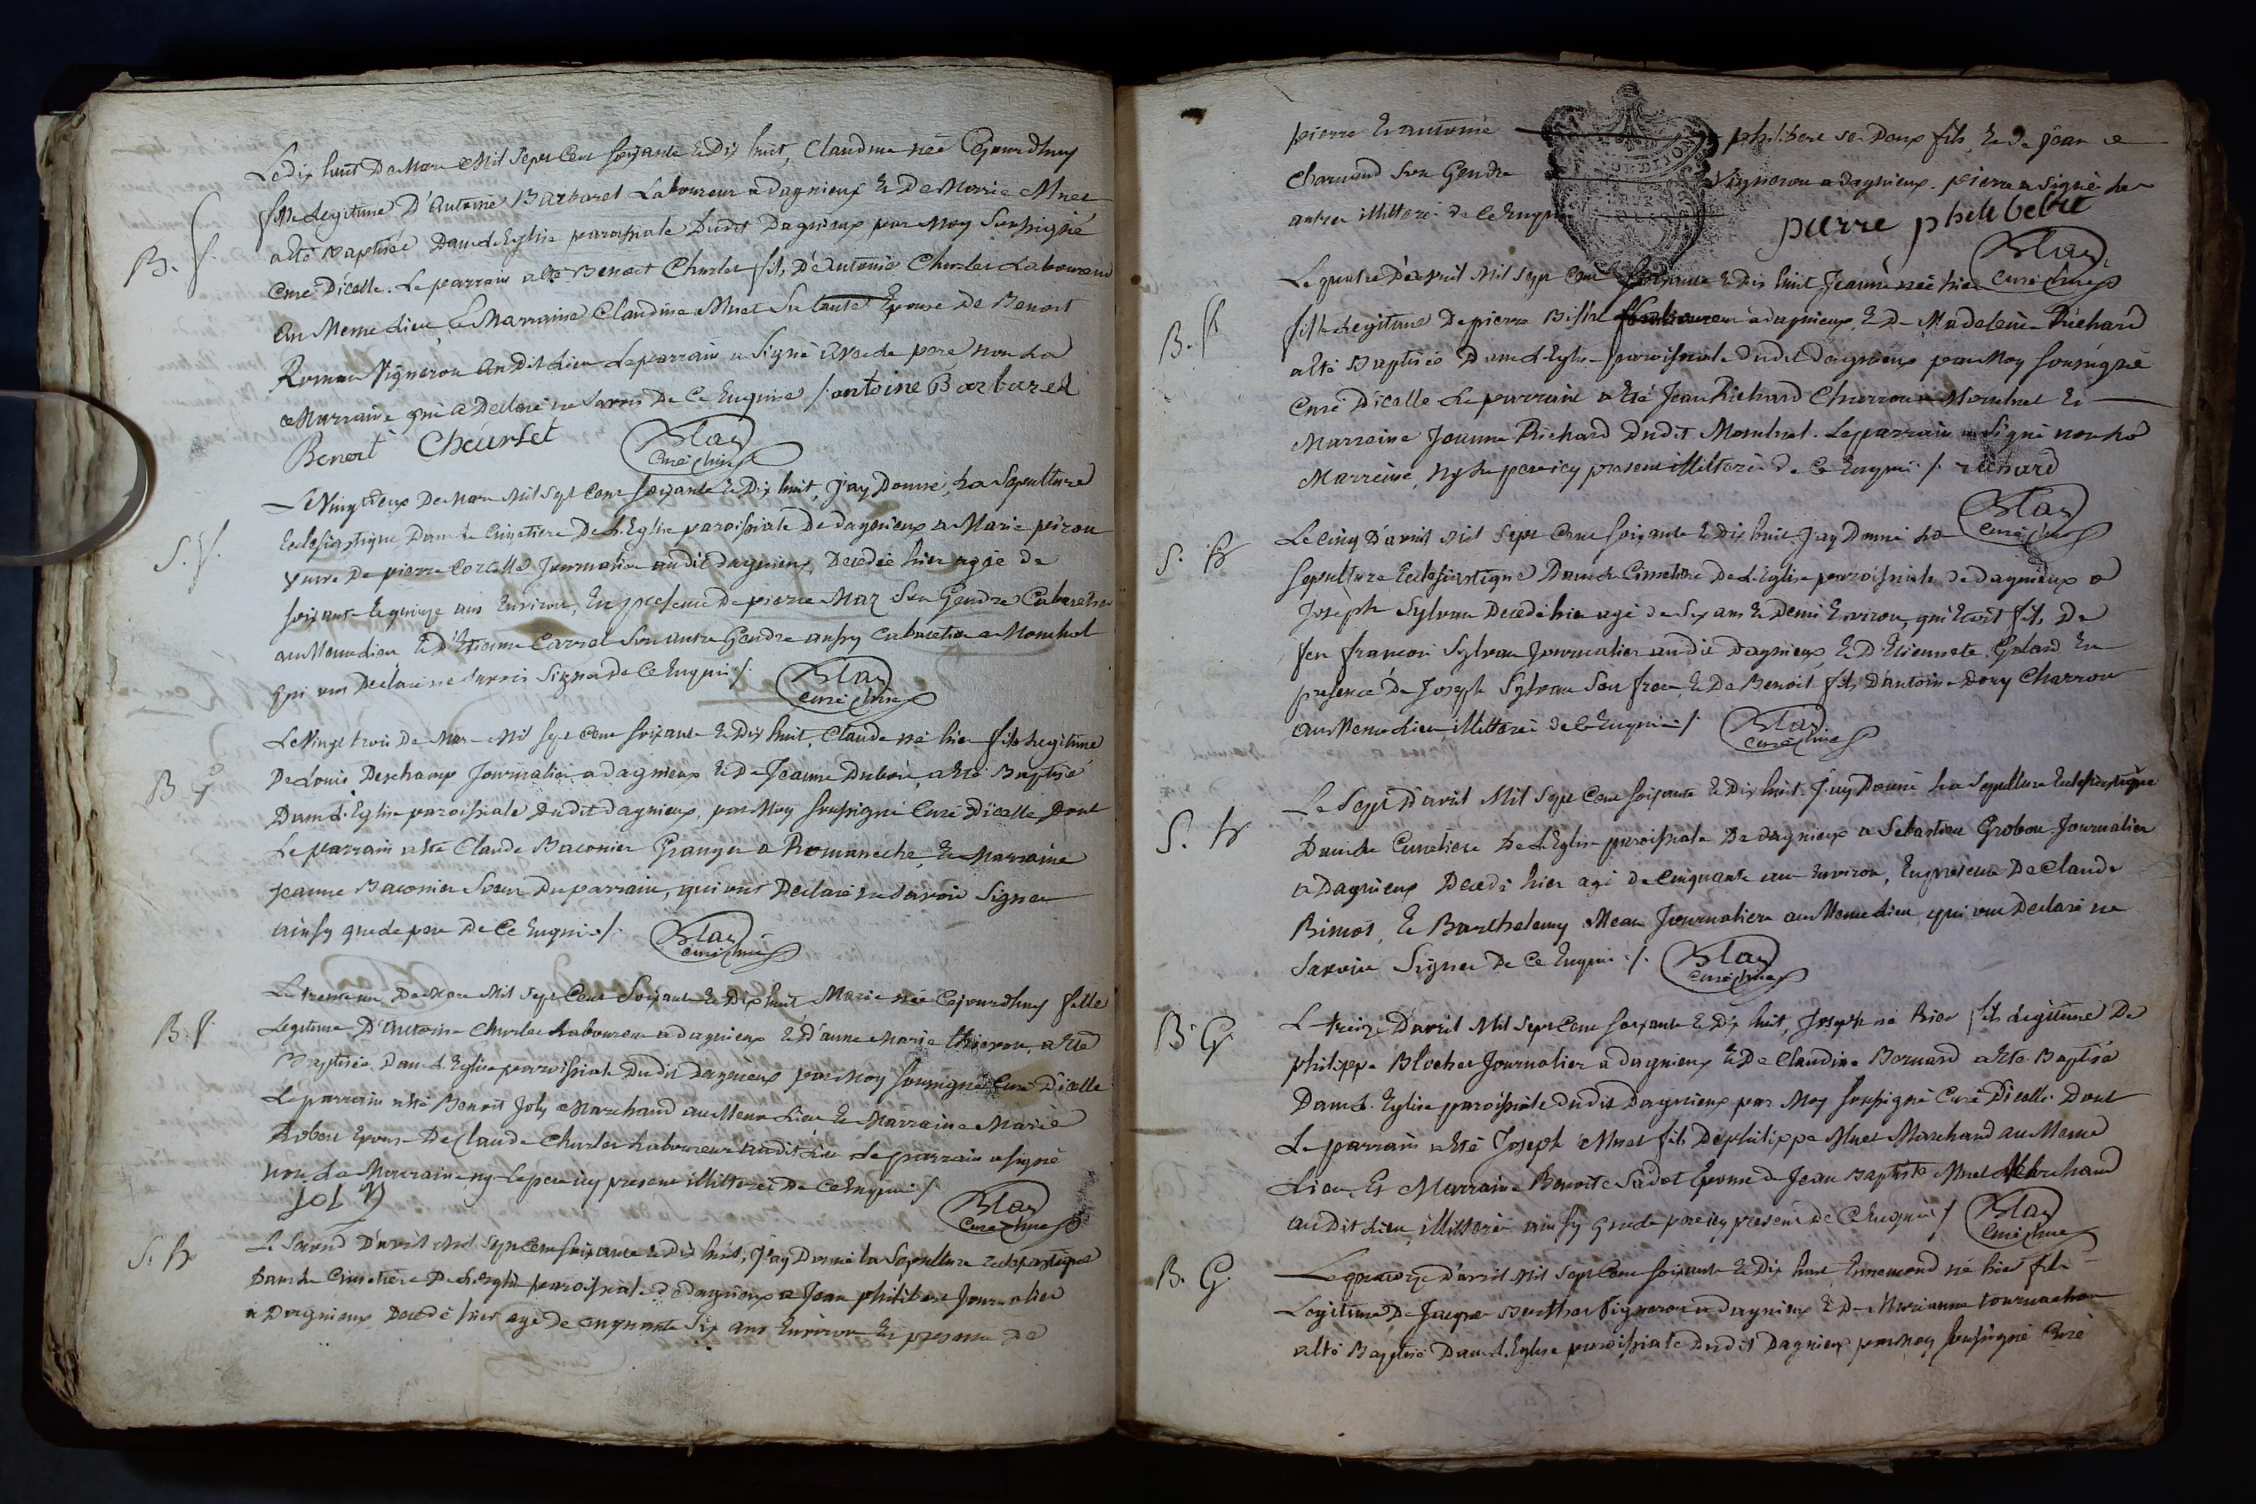 Le dix huit De Mars Mil Sept Cent soixante & Dix huit, Claudine née Cejourdhuy
B. f.
fille Legitime D'Antoine Barbaret Laboureur a dagnieux & De Marie Munet
a eté Baptisée Dans L'Eglise paroissiale Dudit Dagnieux par Moy Soussigné
Curé D'icelle. Le parrain a eté Benoit Churlet fils D'Antoine Churlet Laboureur
Au Meme Lieu, & Marraine Claudine Munet Sa tante Epouse De Benoit
Roman Vigneron Au Dit Lieu Le parrain a Signé avec le pere non La
Marraine qui a Declaré ne Savoir De Ce Enquise /. antoine Barbaret
Benoit Cheurlet
Blay
curé
Le Vingt deux De Mars Mil Sept Cent soixante & Dix huit, J'ay Donné La Sepulture
S. V.
Ecclesiastique Dans le Cimetiere De L'Eglise paroissiale De Dagnieux a Marie peizon
Veuve De pierre Cortelle Journalier audit dagnieux, Decedée hier agée de
soixante & quinze ans Environ, En presence De pierre Maz Son Gendre Cabaretier
au Meme Lieu & D'Etienne Carrel Son autre Gendre aussy Cabaretier a Montluel
qui ont Declaré ne Savoir Signer De Ce Enquis /.
Blay
curé
Le Vingt trois De Mars Mil Sept Cent soixante & Dix huit, Claude né hier fils Legitime
B. G
De Louis Deschamps Journalier a dagnieux & De Jeanne Dubois, a eté Baptisé
Dans L'Eglise paroissiale Dudit Dagnieux, par Moy soussigné Curé D'icelle Dont
Le parrain a eté Claude Baconier Granger a Romaneche, & Marraine
Jeanne Baconier Soeur Du parrain, qui ont Declaré ne Savoir Signer
ainsy que le pere De Ce Enquis /.
Blay
curé
Le trente un De Mars Mil Sept Cent Soixante & Dix huit Marie née Cejourdhuy fille
B. f.
Legitime D'Antoine Churlet Laboureur a dagnieux & D'anne Marie thieron, a eté
Baptisée Dans L'Eglise paroissiale Dudit Dagnieux par Moy soussigné Curé D'icelle
Le parrain a eté Benoit Joly Marchand au Meme Lieu & Marraine Marie
Robou Epouse De Claude Churlet Laboureur audit Lieu Le parrain a signé
non La Marraine ny Le pere icy present illitteré De Ce Enquis /.
Joly
Blay
curé
S. h
Le Second D'avril Mil Sept Cent soixante & Dix huit, J'ay Donné la Sepulture Ecclesiastique
Dans le Cimetiere De L'Eglise paroissiale de dagnieux a Jean philibert Journalier
a Dagnieux Decedé hier agé De cinquante Six ans Environ En presence De
pierre & antoine philibert ses Deux fils, & De Jean
Charmand Son Gendre Vigneron a Dagnieux. pierre a Signé Les
autres illitteré de Ce Enquis
pierre philibert
Blay
curé
Le quatre D'Avril Mil Sept Cent soixante & Dix huit Jeanne née hier
B. f
fille Legitime De pierre a dagnieux, & De Madeleine Richard
a eté Baptisée Dans L'Eglise paroissiale Dudit Dagnieux par Moy soussigné
Curé D'icelle Le parrain a Eté Jean Richard Charron a Montluel &
Marraine Jeanne Richard Dudit Montluel. Le parrain a Signé non La
Marraine, Ny Le pere icy present illitteré De Ce Enquis /. richard
Blay
curé
S. h
Le Cinq D'avril Mil Sept Cent soixante & Dix huit J'ay Donné La
Sepulture Ecclesiastique Dans le Cimetiere De L'Eglise paroissiale de Dagnieux a
Joseph Sylvan Decedé hier agé de Six ans & Demi Environ, qui Etoit fils De
feu francois Sylvan Journalier audit Dagnieux & D'Etiennete Goland En
presence De Joseph Sylvan Son frere, & De Benoit fils D'antoine Dory Charron
au Meme Lieu illitteré De Ce Enquis /.
Blay
curé
S. h
Le Sept D'avril Mil Sept Cent soixante & Dix huit J'ay Donné La Sepulture Ecclesiastique
Dans le Cimetiere De L'Eglise paroissiale De Dagnieux a Sebastien Grobon Journalier
a Dagnieux Decedé hier agé de Cinquante ans Environ, En presence De Claude
Rimot, & Barthelemy Mean Journaliers au Meme Lieu, qui ont Declaré ne
Savoir Signer De Ce Enquis /.
Blay
curé
B. G.
Le treize D'avril Mil Sept Cent soixante & Dix huit, Joseph né hier fils Legitime De
philippe Blocher Journalier a dagnieux & De Claudine Bornard a Eté Baptisé
Dans L'Eglise paroissiale Dudit Dagnieux par Moy soussigné Curé D'icelle Dont
Le parrain a Eté Joseph Munet fils De philippe Munet Marchand au Meme
Lieu, Et Marraine Benoite Sadot Epouse de Jean Baptiste Munet Marchand
au Dit Lieu illitteré ainsy que le pere icy present de Ce Enquis /
Blay
curé
B. G.
Le quatorze D'avril Mil Sept Cent soixante & Dix huit, Ennemond né hier fils
Legitime De Jacques Berthet Vigneron a dagnieux & De Marianne tournachon
a eté Baptisé Dans L'Eglise paroissiale Dudit Dagnieux par Moy soussigné Curé